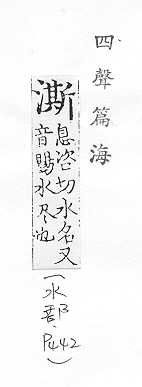 四聲篇海
澌
息咨切水名又
音賜水尽也
(水部·P442)